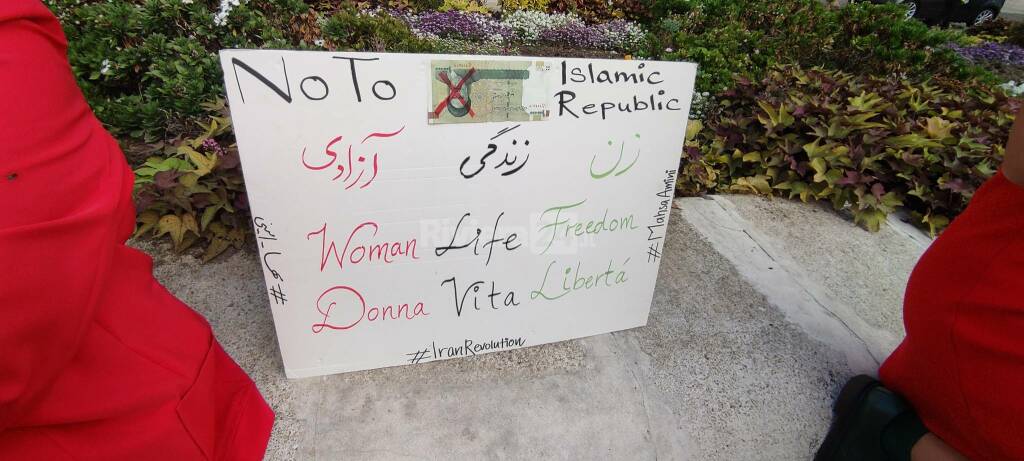 No To
Islamic
Republic
زن زندگی آزادی
Woman Life Freedom
Donna Vita Libertá
#IranRevolution
#MahsaAmini